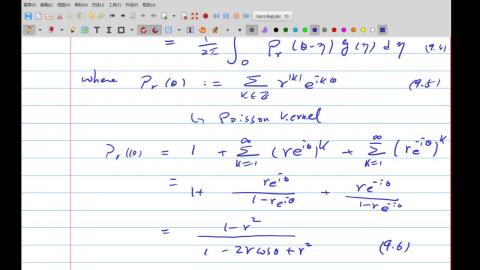 Sans Regular
= 1/2π ∫₀ Pᵣ(θ-η) g(η) dη (9.4)
where Pᵣ(θ) := Σ_{k∈ℤ} r^{|k|} e^{ikθ} (9.5)
↳ Poisson Kernel
Pᵣ(θ) = 1 + Σ_{k=1}^{∞} (re^{iθ})^k + Σ_{k=1}^{∞} (re^{-iθ})^k
= 1+ re^{iθ}/(1-re^{iθ}) + re^{-iθ}/(1-re^{-iθ})
= (1-r²)/(1-2rcosθ+r²) (9.6)